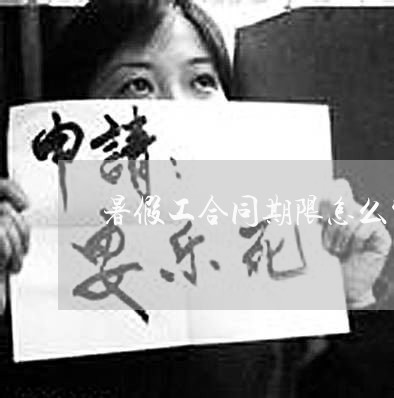 申請：
暑假工合同期限怎么
安乐死